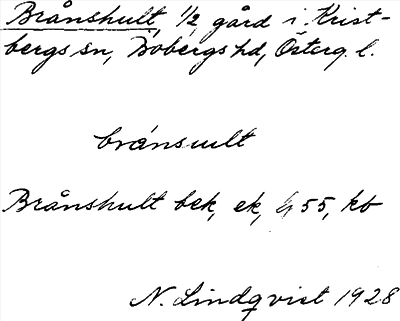 Brånshult, 1/2 gård i Krist-
bergs sn, Bobergs hd, Österg. l.
brånsult
Brånshult bek, ek, G 55, kb
N. Lindqvist 1928